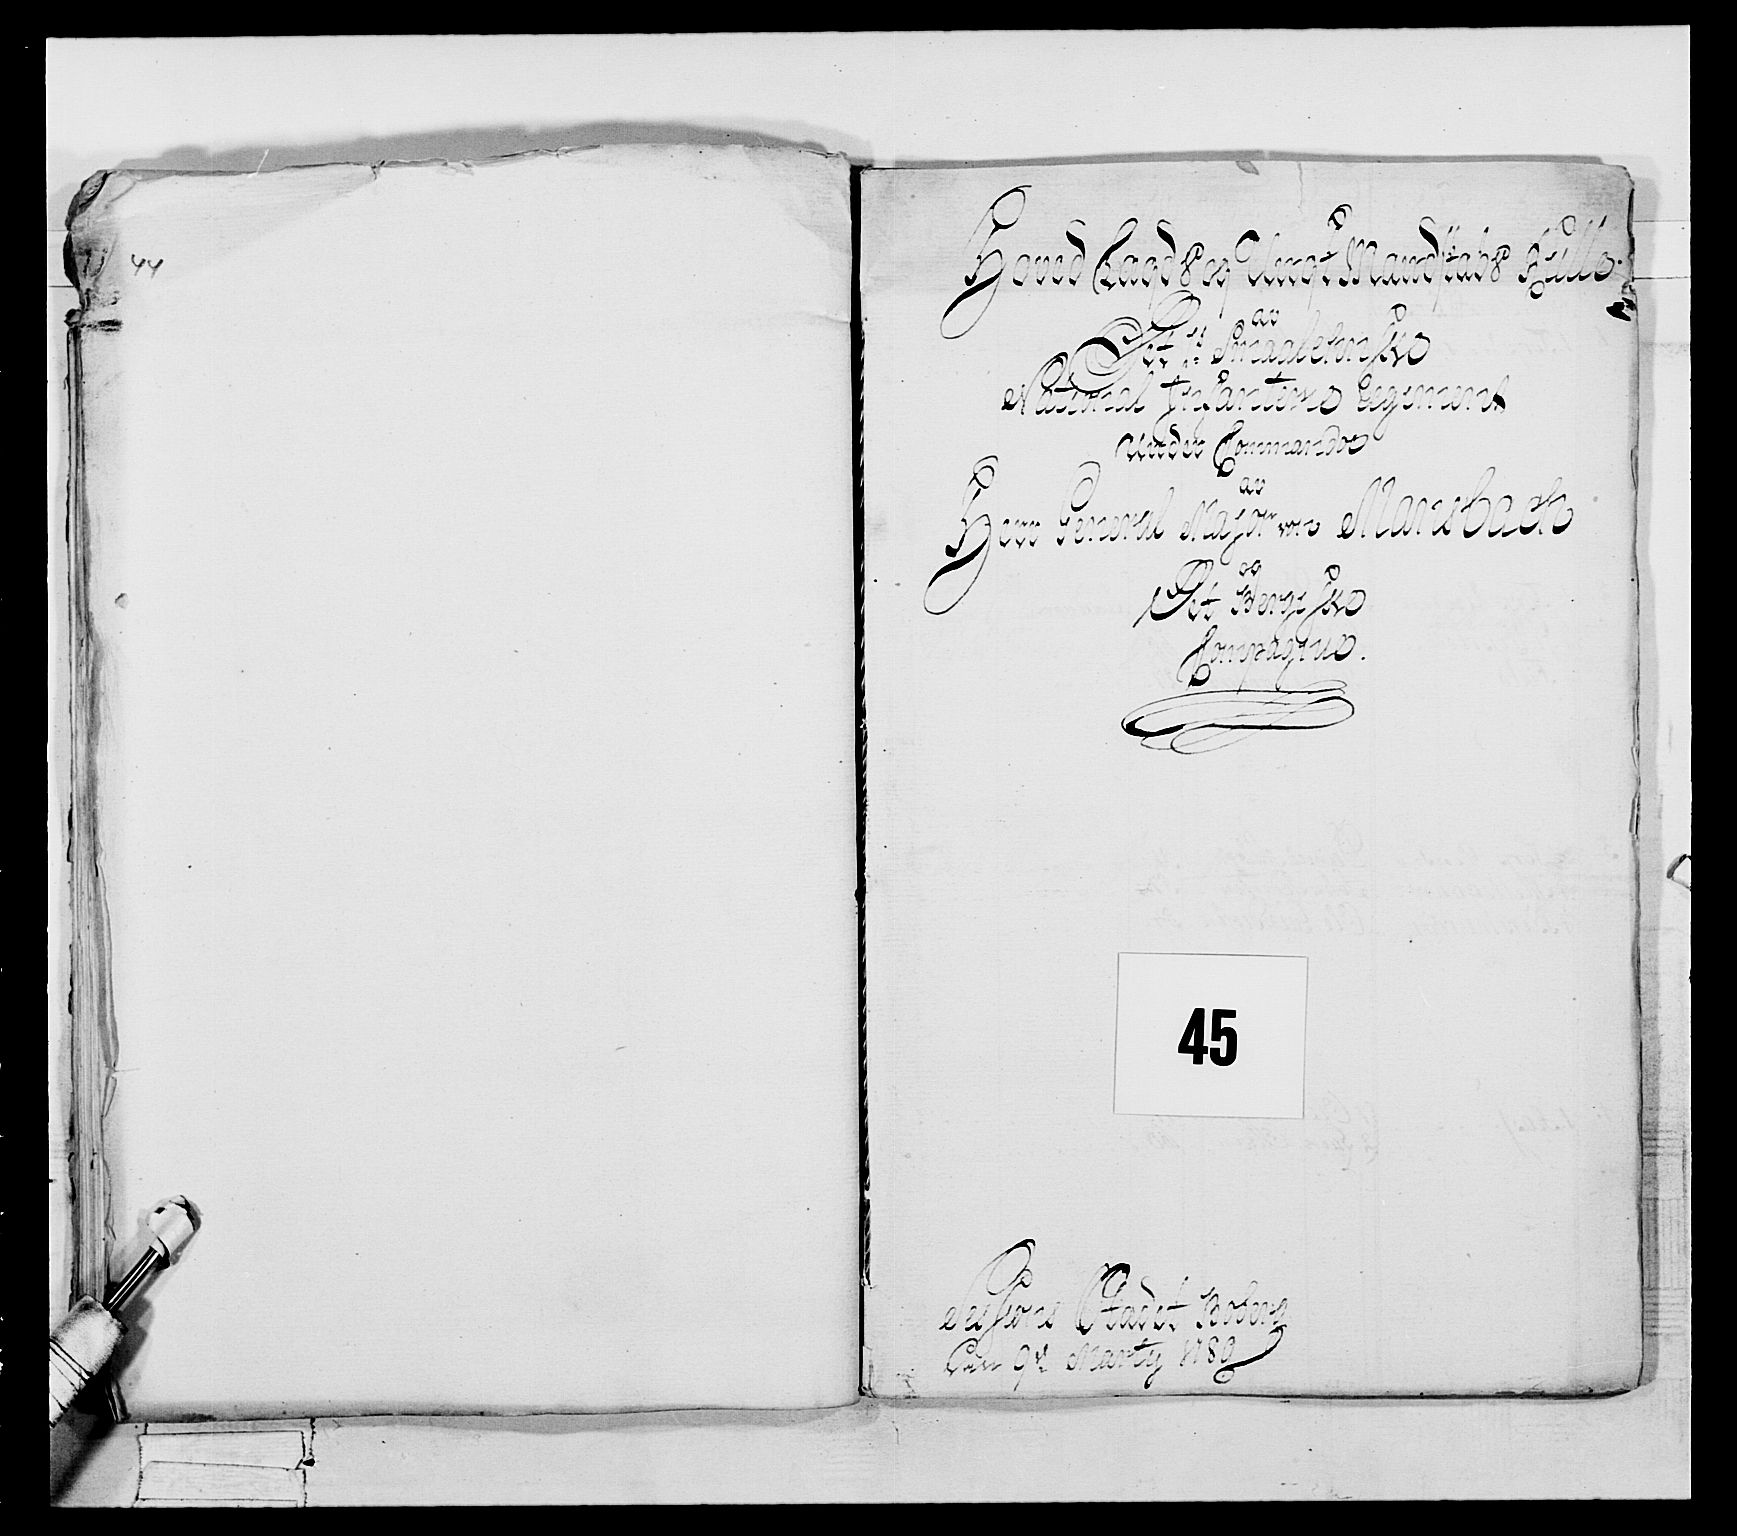 44
Hoved Lægds og Ungt Mandskabs Rulle.
av
Det 2det Smaalehnske
National Infanterie Regiment
Under Commando
av
Herr General Major von Mansbach
og
Det Bergske
Compagnie.
45
Sessions Stædet Boberg
Den 9de Marty 1789